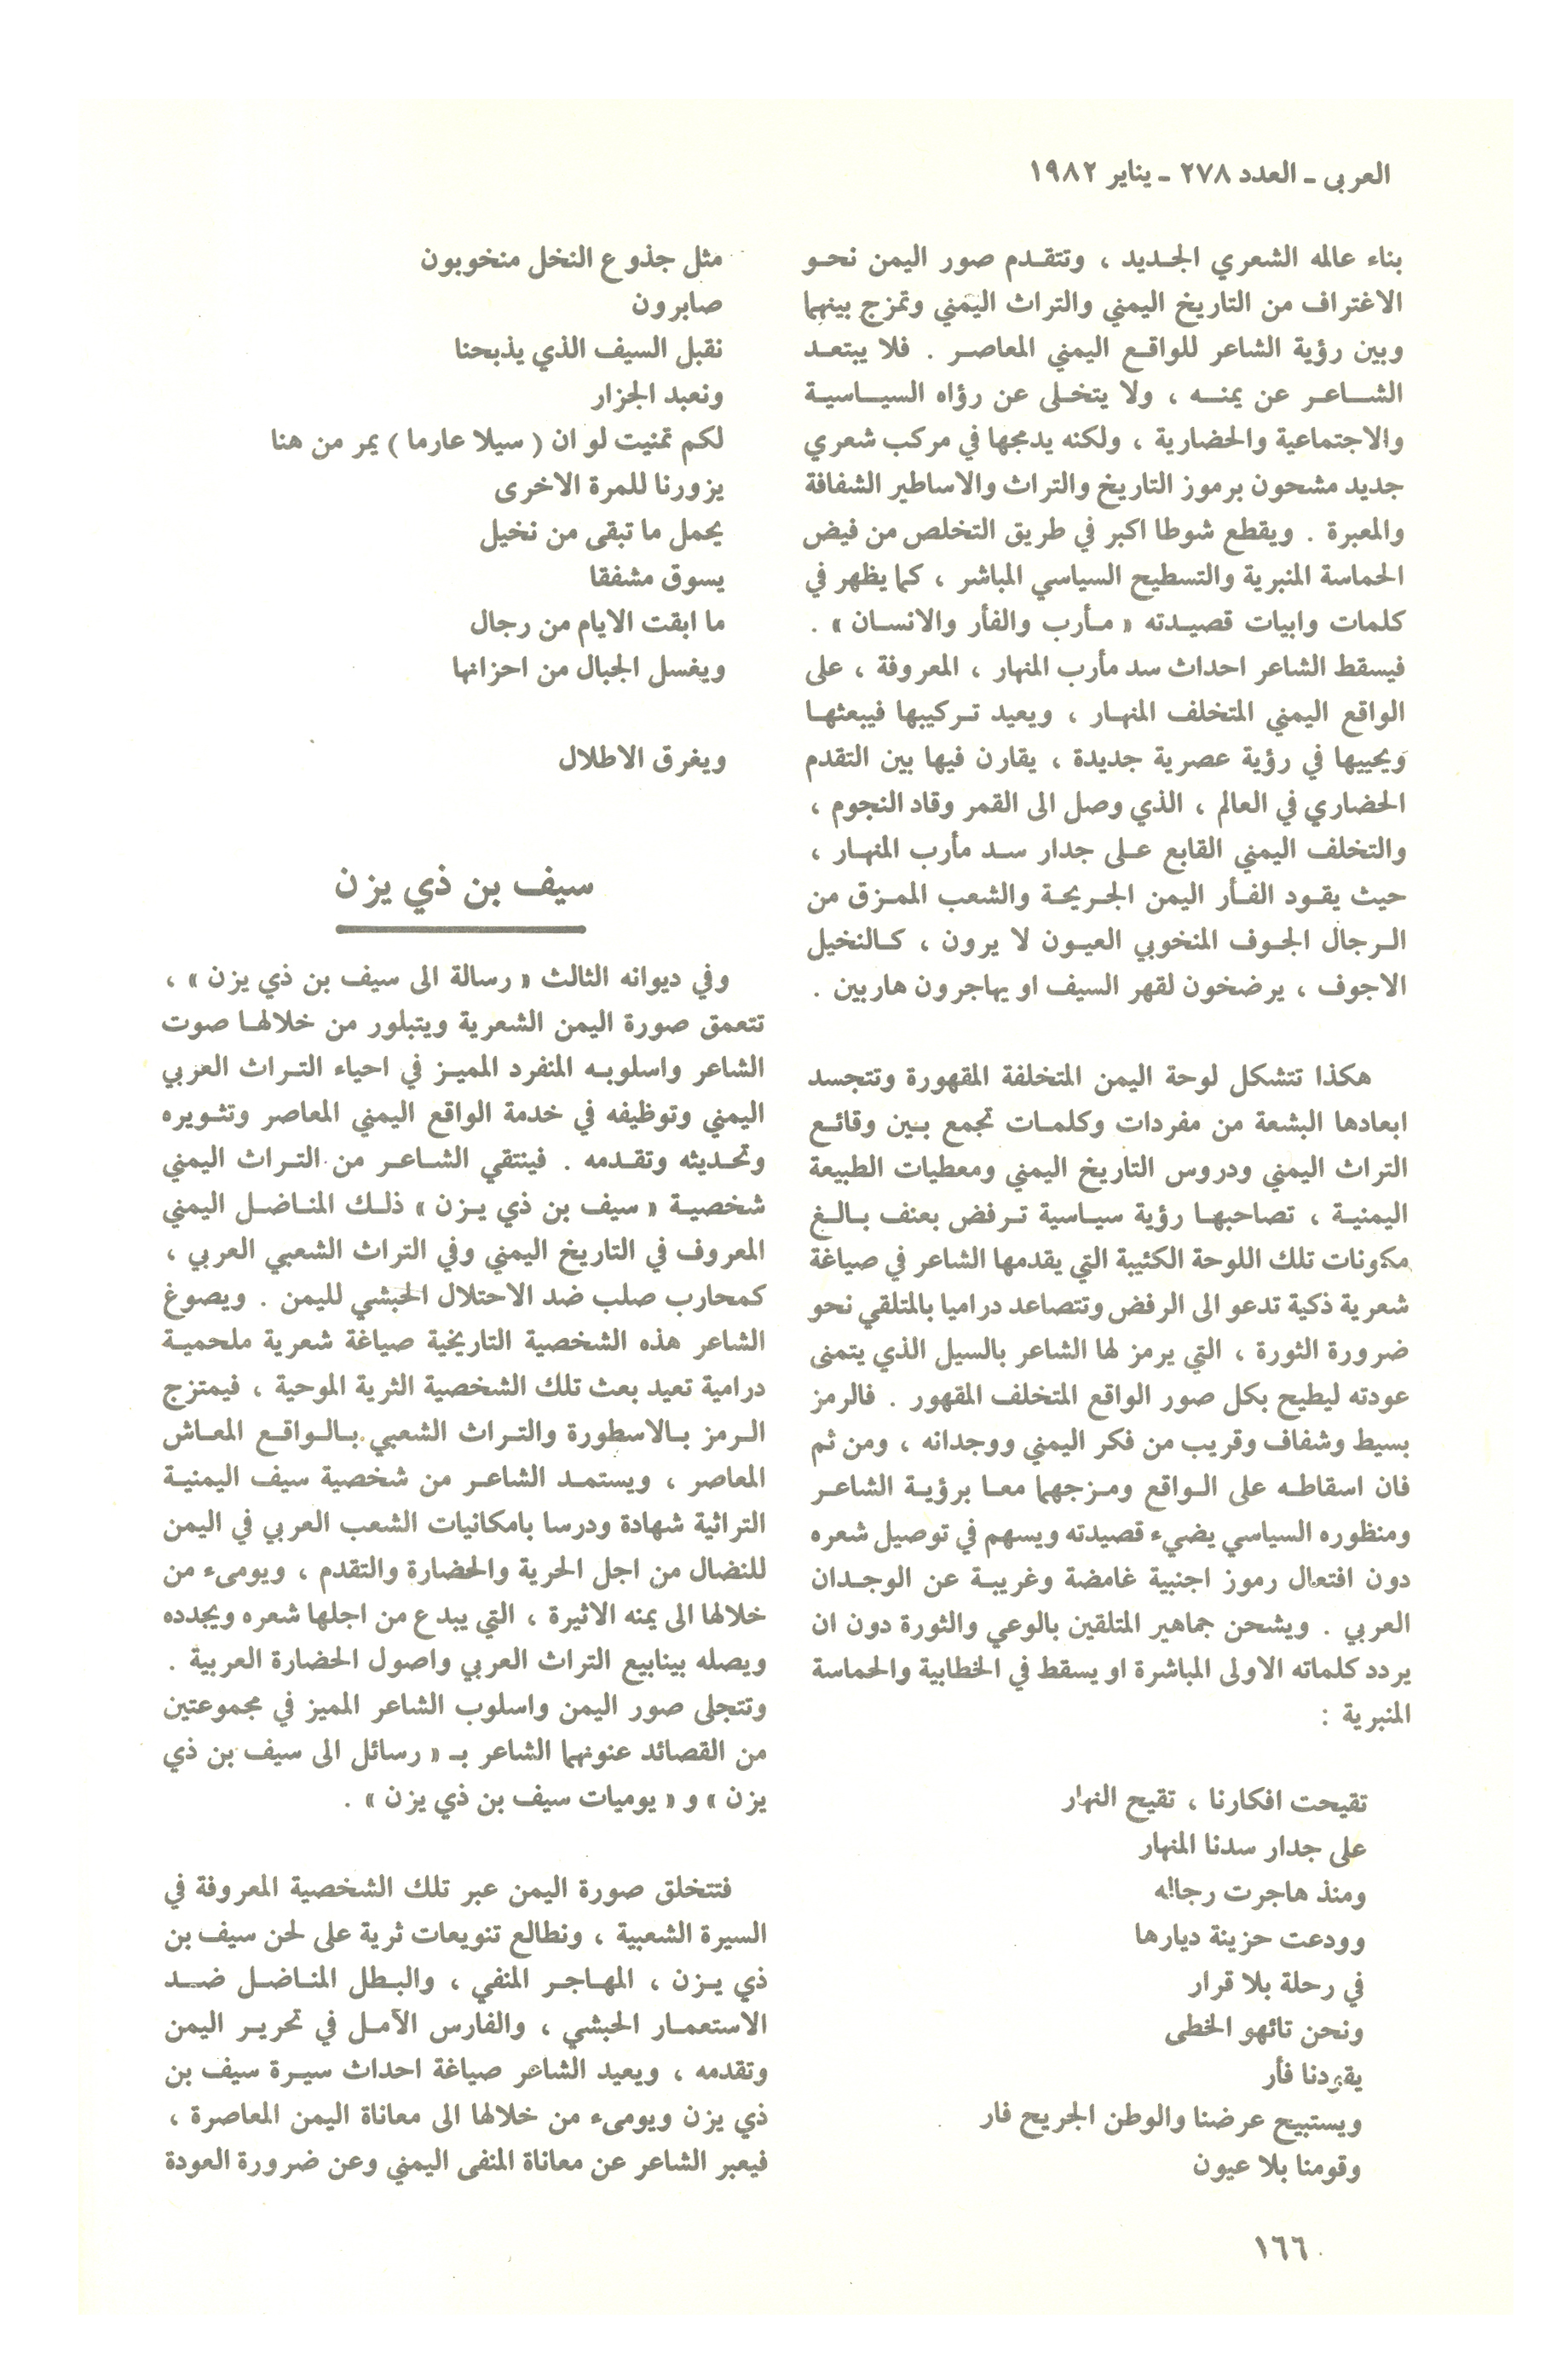 العربى - العدد ٢٧٨ - يناير ١٩٨٢
بناء عالمه الشعري الجديد ، وتتقدم صور اليمن نحو
الاغتراف من التاريخ اليمني والتراث اليمني وتمزج بينهما
وبين رؤية الشاعر للواقع اليمني المعاصر . فلا يبتعد
الشاعر عن يمنه ، ولا يتخلى عن رؤاه السياسية
والاجتماعية والحضارية ، ولكنه يدمجها في مركب شعري
جديد مشحون برموز التاريخ والتراث والاساطير الشفافة
والمعبرة . ويقطع شوطا اكبر في طريق التخلص من فيض
الحماسة المنبرية والتسطيح السياسي المباشر ، كما يظهر في
كلمات وابيات قصيدته « مأرب والفأر والانسان » .
فيسقط الشاعر احداث سد مأرب المنهار ، المعروفة ، على
الواقع اليمني المتخلف المنهار ، ويعيد تركيبها فيبعثها
ويحييها في رؤية عصرية جديدة ، يقارن فيها بين التقدم
الحضاري في العالم ، الذي وصل الى القمر وقاد النجوم ،
والتخلف اليمني القابع على جدار سد مأرب المنهار ،
حيث يقود الفأر اليمن الجريحة والشعب الممزق من
الرجال الجوف المنخوبي العيون لا يرون ، كالنخيل
الاجوف ، يرضخون لقهر السيف او يهاجرون هاربين .
هكذا تتشكل لوحة اليمن المتخلفة المقهورة وتتجسد
ابعادها البشعة من مفردات وكلمات تجمع بين وقائع
التراث اليمني ودروس التاريخ اليمني ومعطيات الطبيعة
اليمنية ، تصاحبها رؤية سياسية ترفض بعنف بالغ
مكونات تلك اللوحة الكئيبة التي يقدمها الشاعر في صياغة
شعرية ذكية تدعو الى الرفض وتتصاعد دراميا بالمتلقي نحو
ضرورة الثورة ، التي يرمز لها الشاعر بالسيل الذي يتمنى
عودته ليطيح بكل صور الواقع المتخلف المقهور . فالرمز
بسيط وشفاف وقريب من فكر اليمني ووجدانه ، ومن ثم
فان اسقاطه على الواقع ومزجهما معا برؤية الشاعر
ومنظوره السياسي يضيء قصيدته ويسهم في توصيل شعره
دون افتعال رموز اجنبية غامضة وغريبة عن الوجدان
العربي . ويشحن جماهير المتلقين بالوعي والثورة دون ان
يردد كلماته الاولى المباشرة او يسقط في الخطابية والحماسة
المنبرية :
تقيحت افكارنا ، تقيح النهار
على جدار سدنا المنهار
ومنذ هاجرت رجاله
وودعت حزينة ديارها
في رحلة بلا قرار
ونحن تائهو الخطى
يقودنا فأر
ويستبيح عرضنا والوطن الجريح فار
وقومنا بلا عيون
مثل جذوع النخل منخوبون
صابرون
نقبل السيف الذي يذبحنا
ونعبد الجزار
لكم تمنيت لو ان ( سيلا عارما ) يمر من هنا
يزورنا للمرة الاخرى
يحمل ما تبقى من نخيل
يسوق مشفقا
ما ابقت الايام من رجال
ويغسل الجبال من احزانها
ويغرق الاطلال
سيف بن ذي يزن
وفي ديوانه الثالث « رسالة الى سيف بن ذي يزن » ،
تتعمق صورة اليمن الشعرية ويتبلور من خلالها صوت
الشاعر واسلوبه المنفرد المميز في احياء التراث العربي
اليمني وتوظيفه في خدمة الواقع اليمني المعاصر وتثويره
وتحديثه وتقدمه . فينتقي الشاعر من التراث اليمني
شخصية « سيف بن ذي يزن » ذلك المناضل اليمني
المعروف في التاريخ اليمني وفي التراث الشعبي العربي ،
كمحارب صلب ضد الاحتلال الحبشي لليمن . ويصوغ
الشاعر هذه الشخصية التاريخية صياغة شعرية ملحمية
درامية تعيد بعث تلك الشخصية الثرية الموحية ، فيمتزج
الرمز بالاسطورة والتراث الشعبي بالواقع المعاش
المعاصر ، ويستمد الشاعر من شخصية سيف اليمنية
التراثية شهادة ودرسا بامكانيات الشعب العربي في اليمن
للنضال من اجل الحرية والحضارة والتقدم ، ويومىء من
خلالها الى يمنه الاثيرة ، التي يبدع من اجلها شعره ويجدده
ويصله بينابيع التراث العربي واصول الحضارة العربية .
وتتجلى صور اليمن واسلوب الشاعر المميز في مجموعتين
من القصائد عنونهما الشاعر بـ « رسائل الى سيف بن ذي
يزن » و « يوميات سيف بن ذي يزن » .
فتتخلق صورة اليمن عبر تلك الشخصية المعروفة في
السيرة الشعبية ، ونطالع تنويعات ثرية على لحن سيف بن
ذي يزن ، المهاجر المنفي ، والبطل المناضل ضد
الاستعمار الحبشي ، والفارس الآمل في تحرير اليمن
وتقدمه ، ويعيد الشاعر صياغة احداث سيرة سيف بن
ذي يزن ويومىء من خلالها الى معاناة اليمن المعاصرة ،
فيعبر الشاعر عن معاناة المنفى اليمني وعن ضرورة العودة
١٦٦